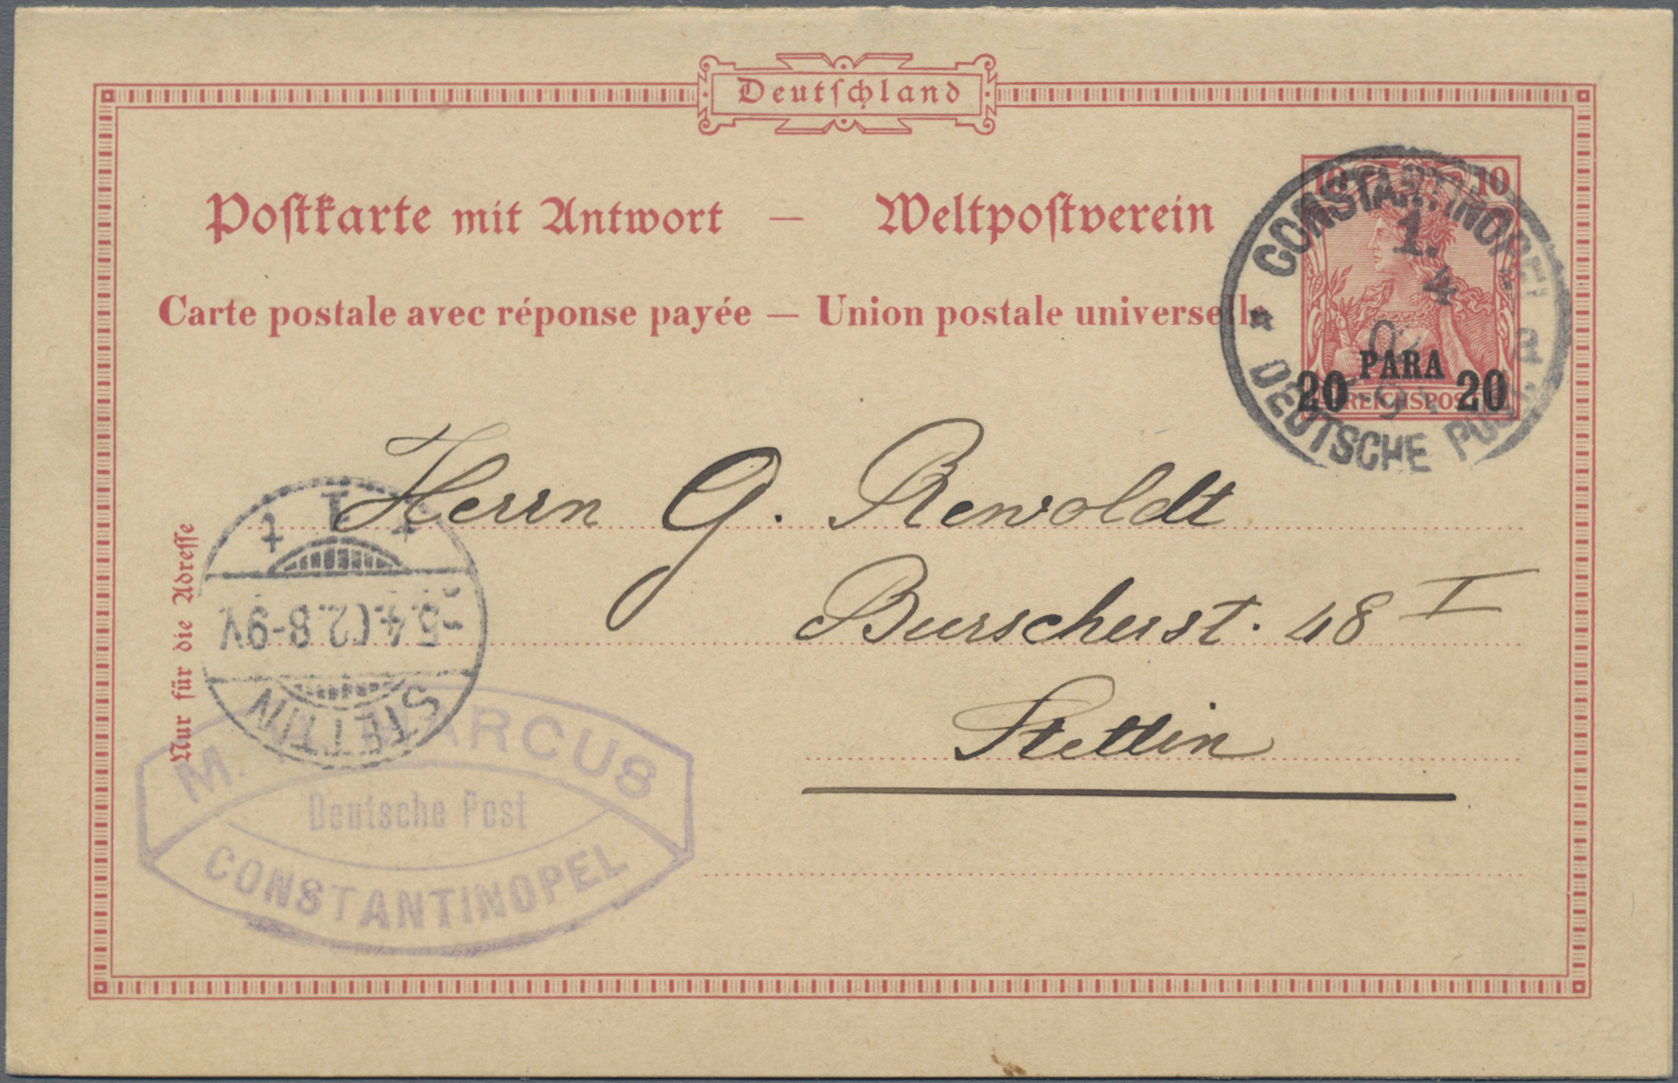 Deutschland
Postkarte mit Antwort — Weltpostverein
Carte postale avec réponse payée — Union postale universelle
10 10
PARA
20 20
REICHSPOST
CONSTANTINOPEL
1.
4
02
DEUTSCHE POST
Herrn G. Rewoldt
Burscherst. 48 I
Stettin
Nur für die Adresse
STETTIN
-5.4.02.8-9V.
1
M. MARCUS
Deutsche Post
CONSTANTINOPEL